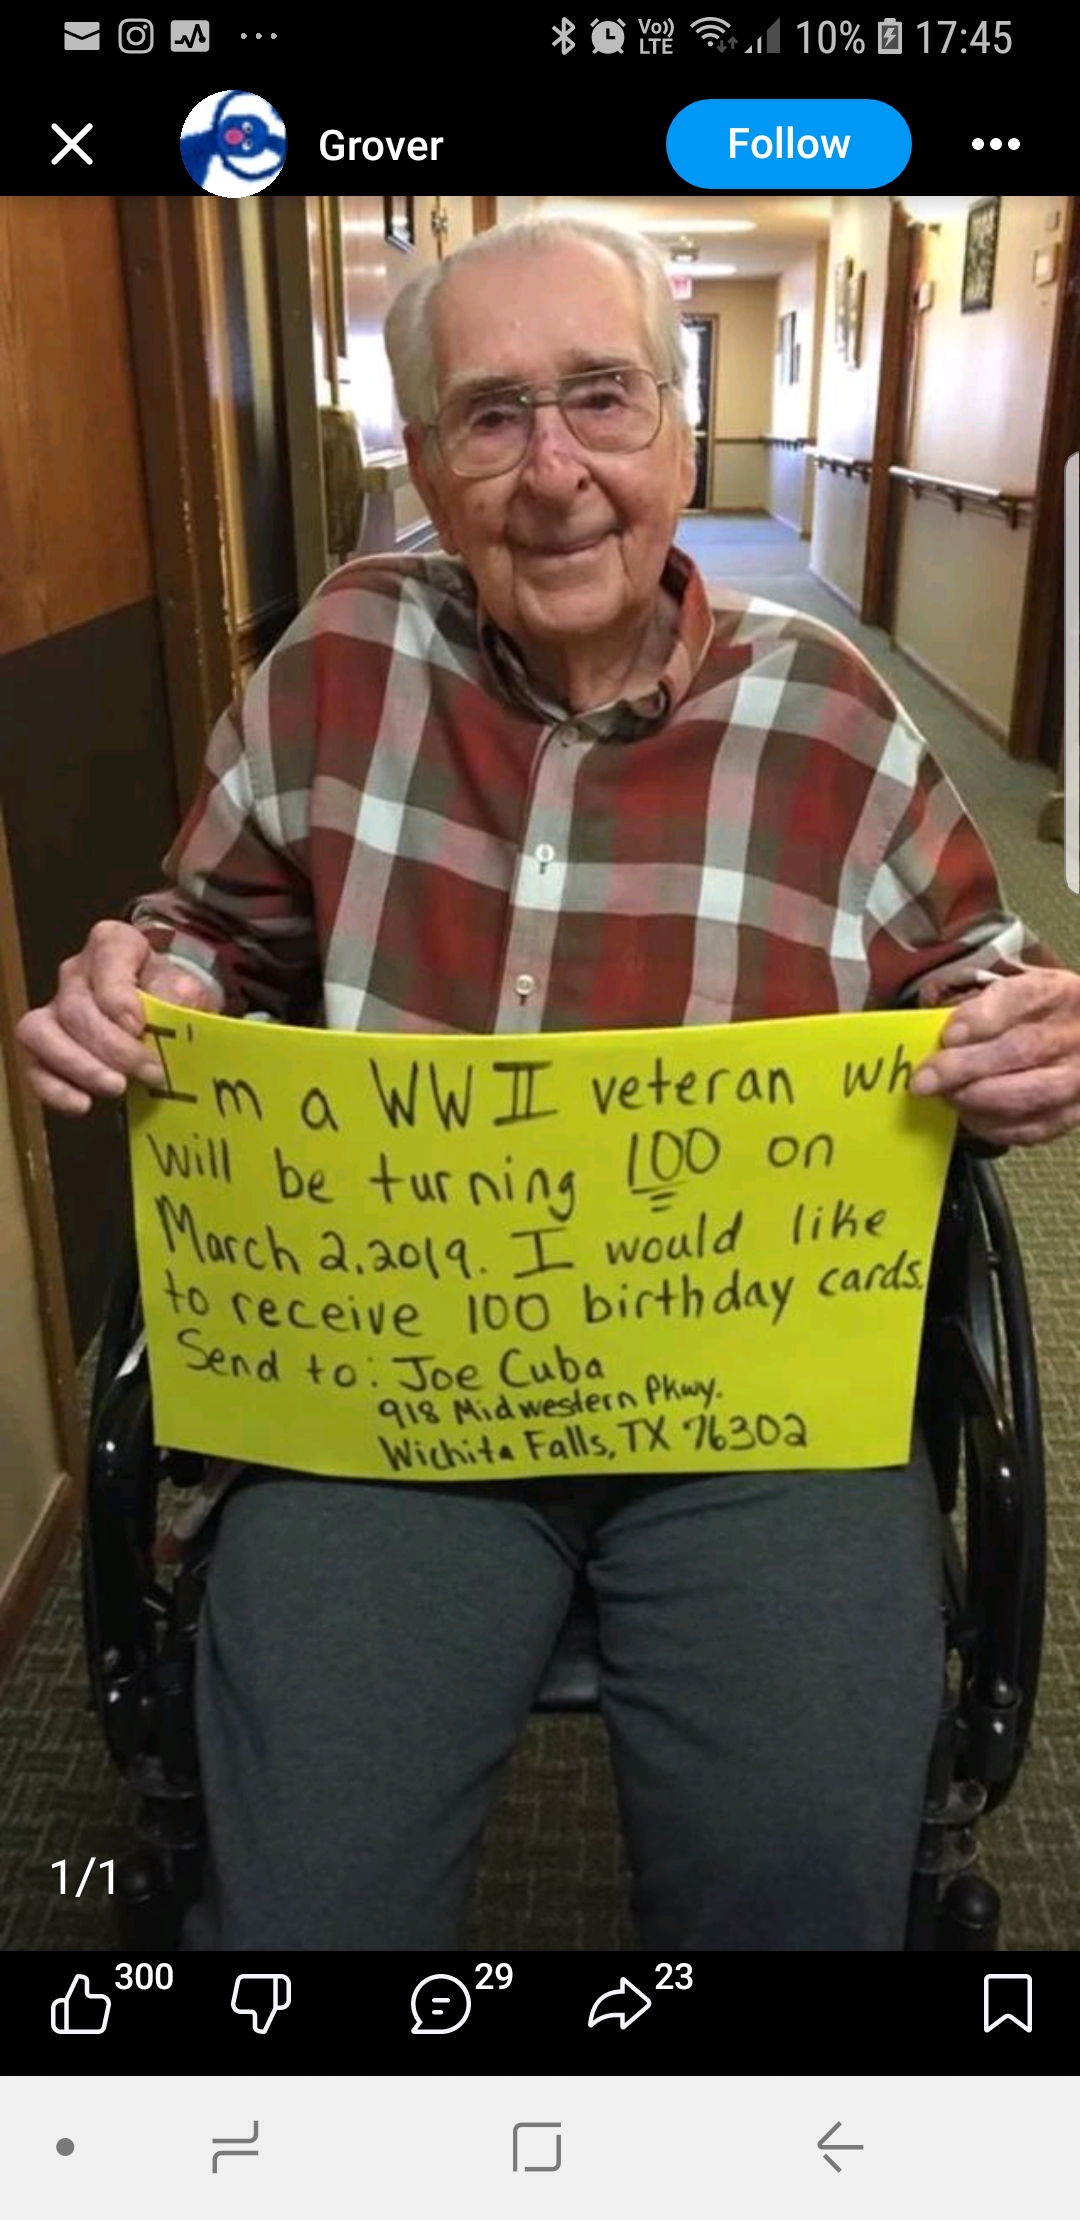 10% 17:45
Vo))
LTE
Grover
Follow
I'm a WWII veteran wh
will be turning 100 on
March 2, 2019. I would like
to receive 100 birthday cards.
Send to: Joe Cuba
918 Midwestern Pkwy.
Wichita Falls, TX 76302
1/1
300
29
23